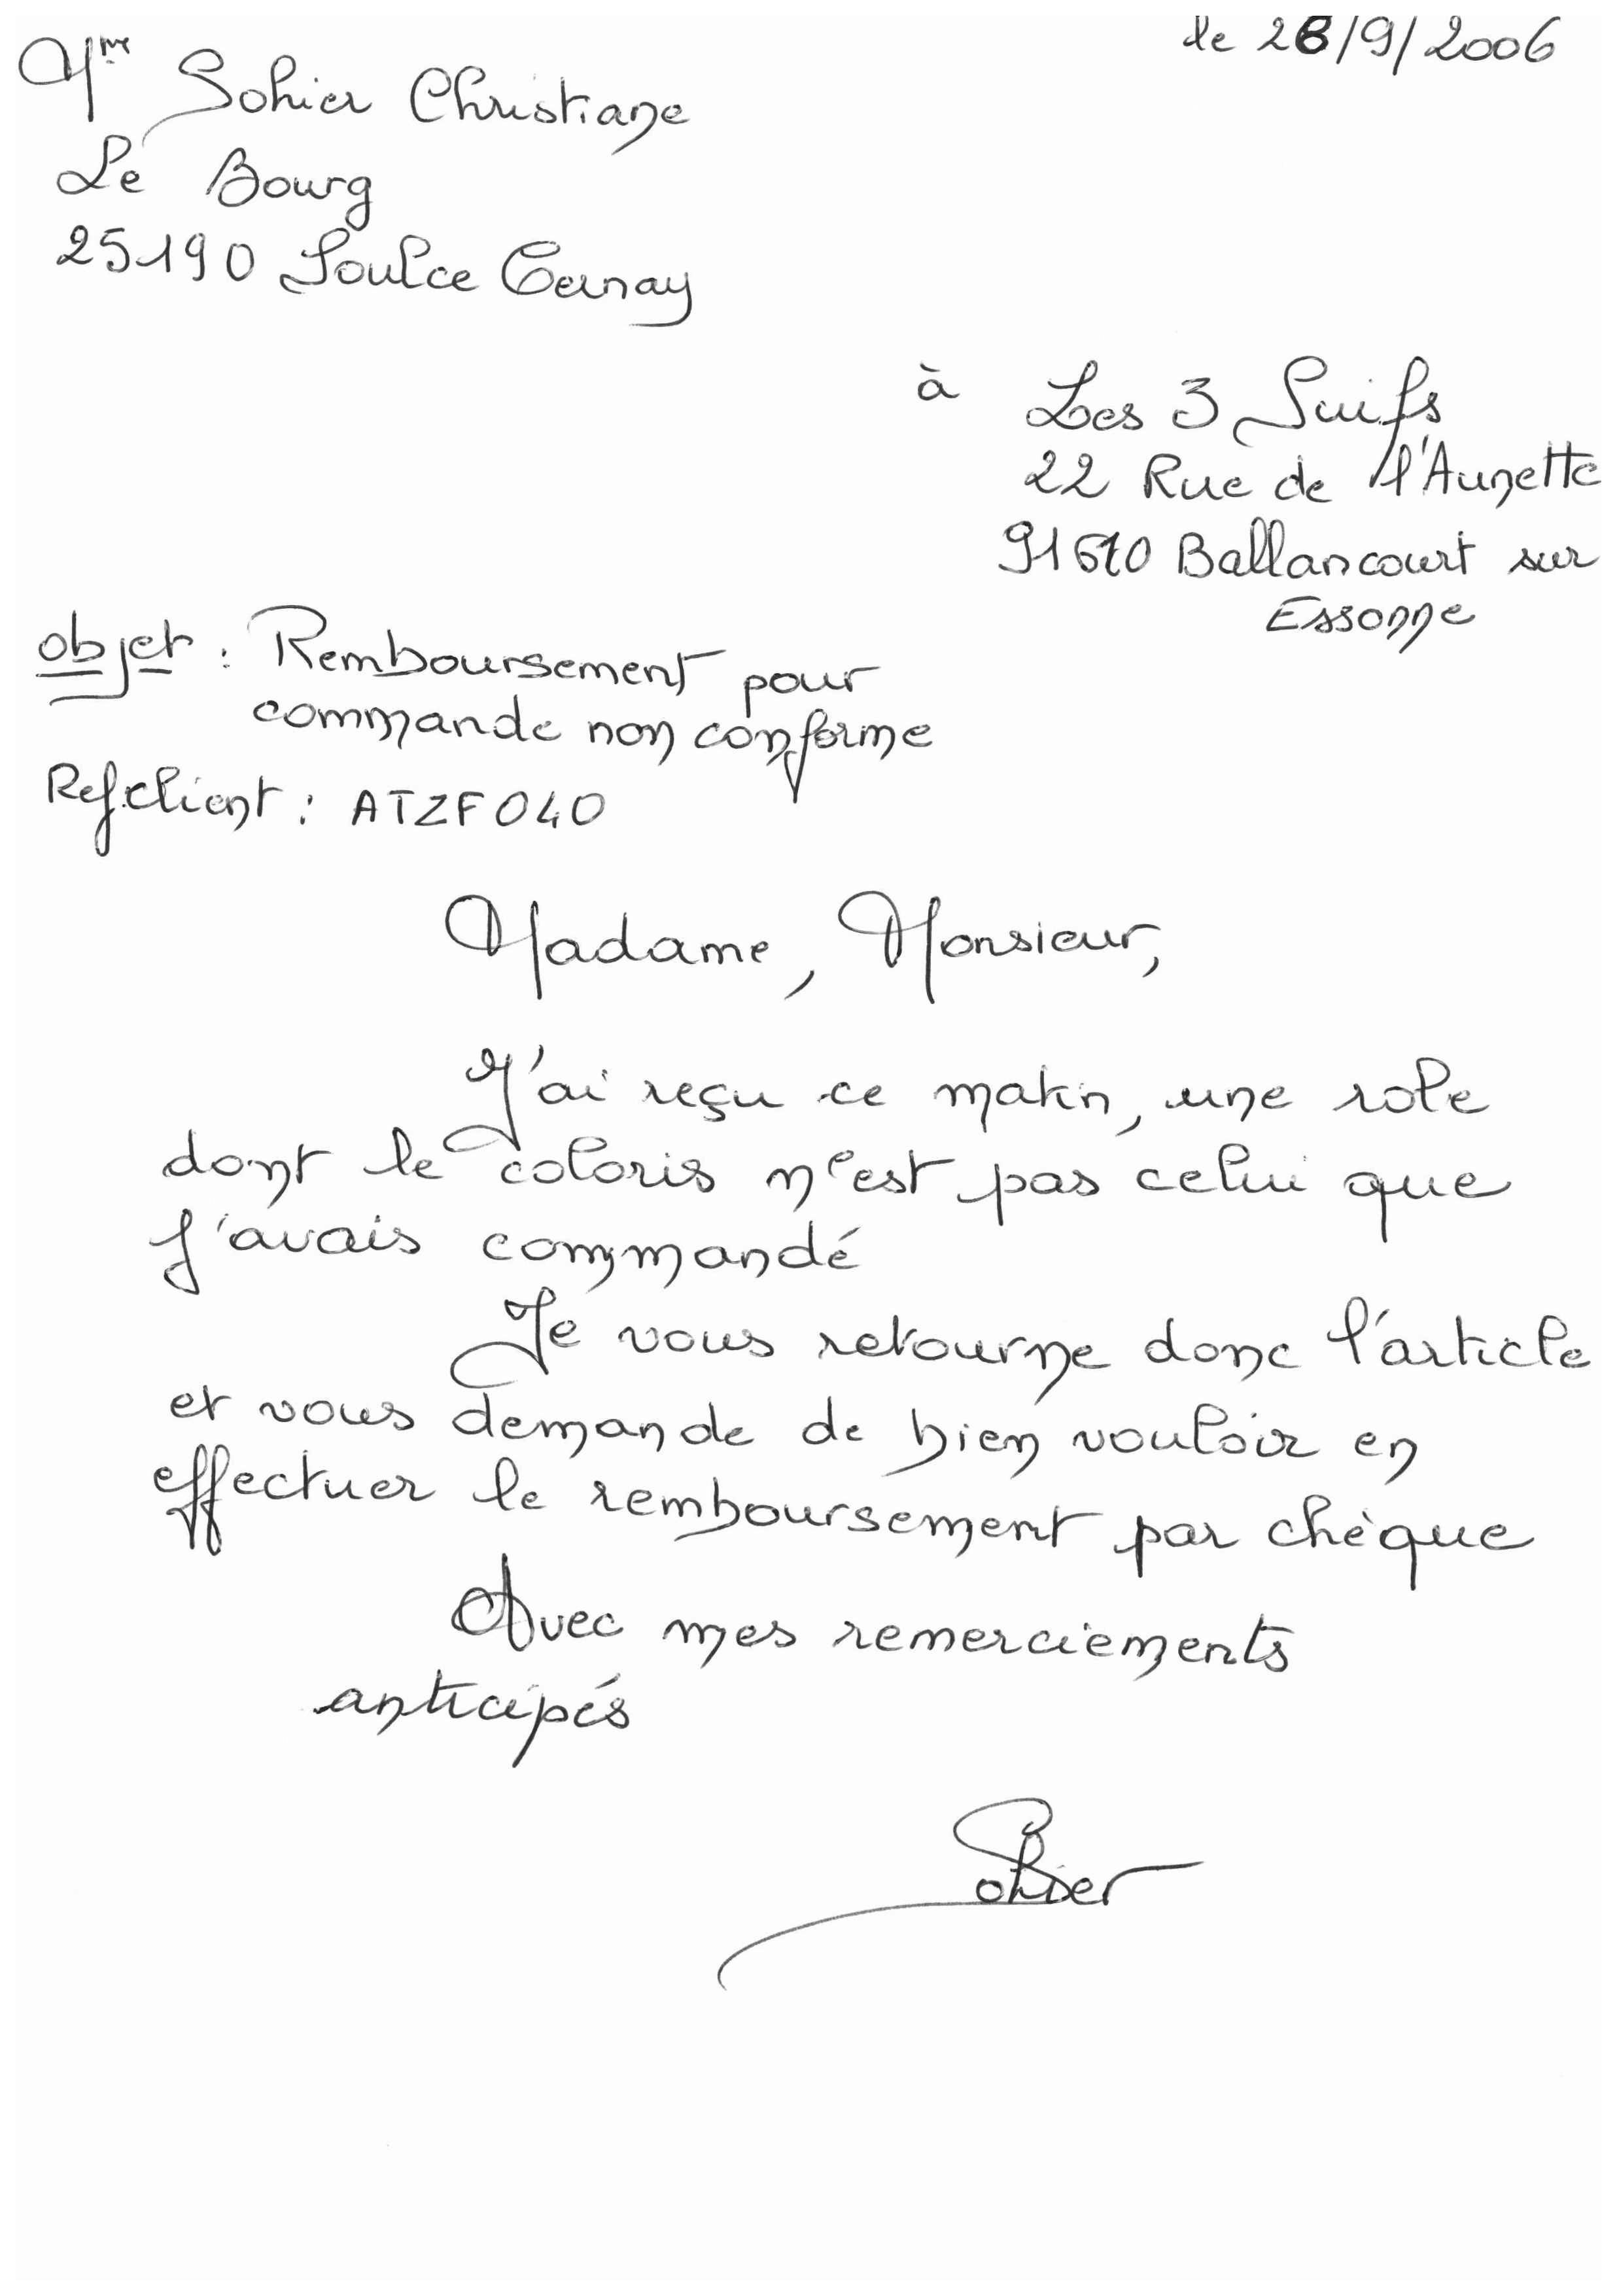 le 26/9/2006
Mme Sohier Christiane
Le Bourg
25190 Soulce Cernay
à Les 3 Suifs
22 Rue de l'Aunette
91610 Ballancourt sur
Essonne
objet : Remboursement pour
commande non conforme
Ref client : ATZF040
Madame, Monsieur,
J'ai reçu ce matin, une robe
dont le coloris n'est pas celui que
j'avais commandé
Je vous retourne donc l'article
et vous demande de bien vouloir en
effectuer le remboursement par chèque
Avec mes remerciements
anticipés
Sohier